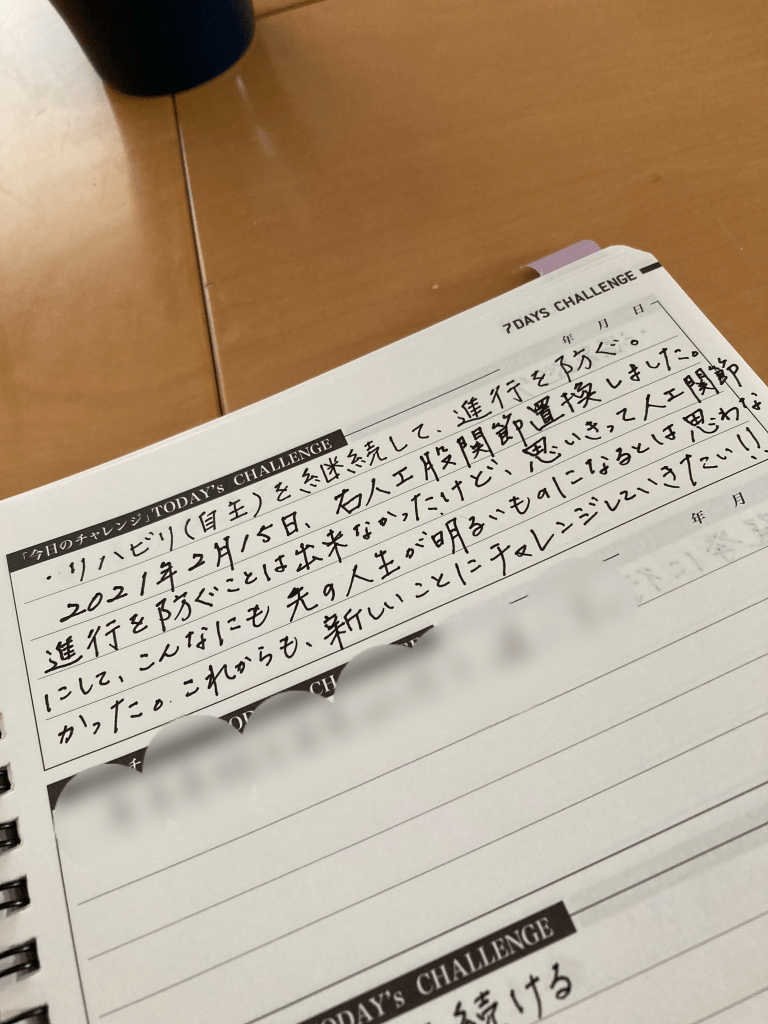 7DAYS CHALLENGE
年 月 日
「今日のチャレンジ」TODAY's CHALLENGE
・リハビリ(自主)を継続して、進行を防ぐ。
2021年2月15日、右人工股関節置換しました。
進行を防ぐことは出来なかったけど、思いきって人工関節
にして、こんなにも先の人生が明るいものになるとは思わな
かった。これからも、新しいことにチャレンジしていきたい!!
年 月
TODAY's CHALLENGE
続ける